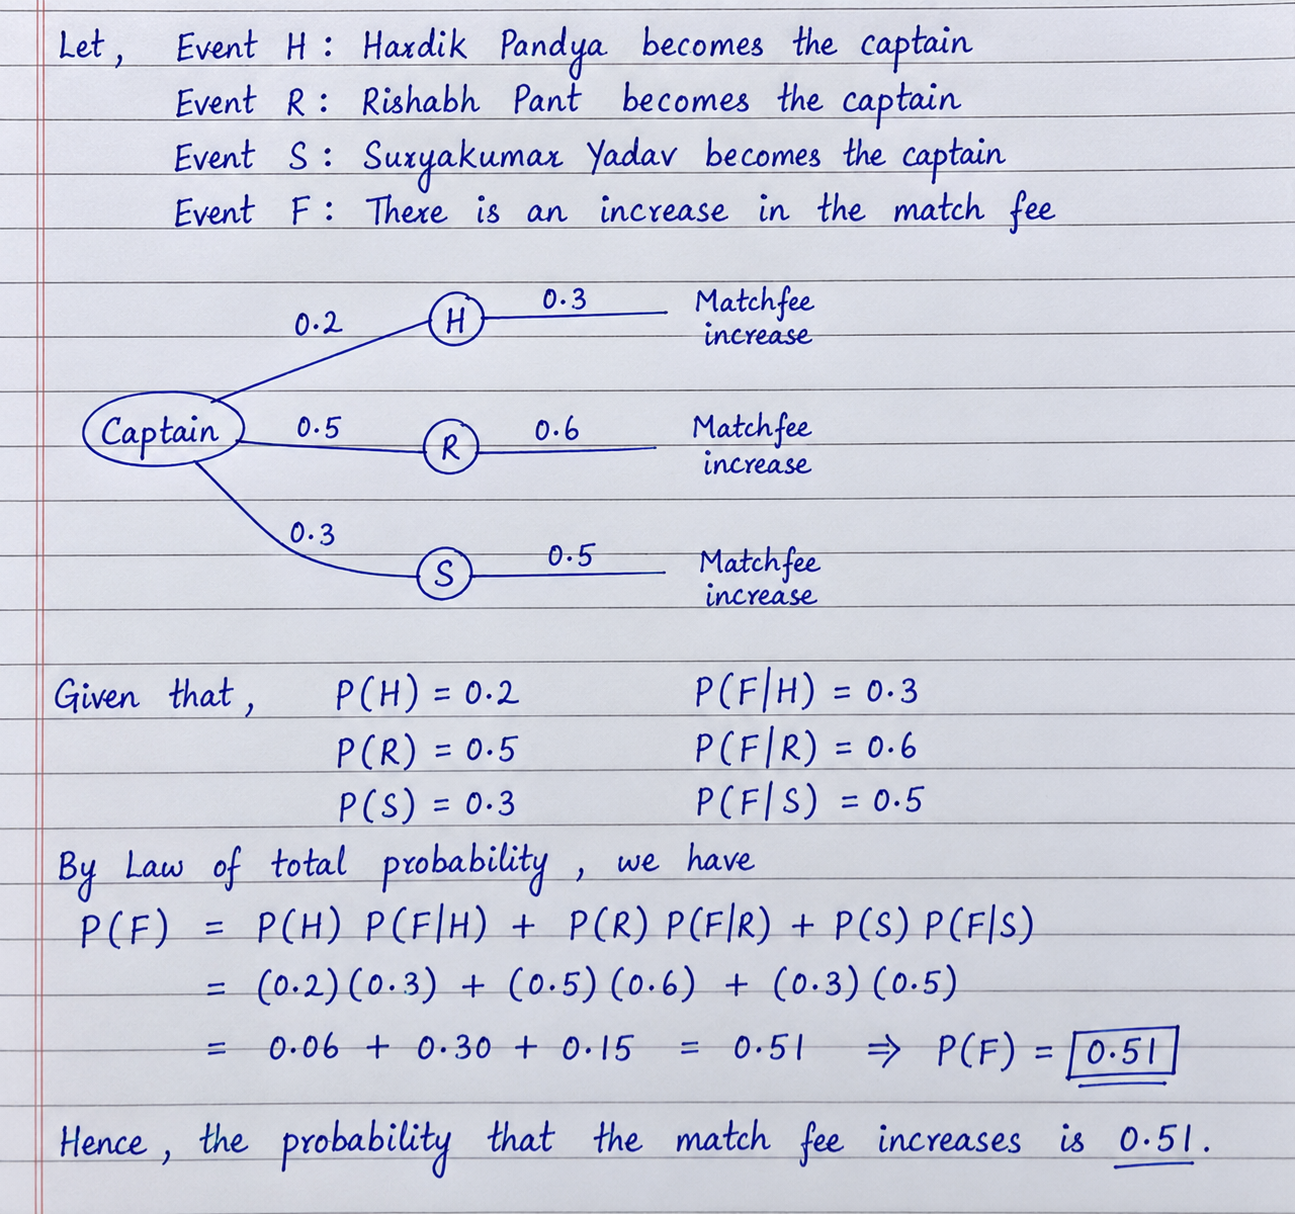 Let, Event H : Hardik Pandya becomes the captain
Event R : Rishabh Pant becomes the captain
Event S : Suryakumar Yadav becomes the captain
Event F : There is an increase in the match fee
0.2 H 0.3 Matchfee
increase
Captain 0.5 R 0.6 Matchfee
increase
0.3 S 0.5 Matchfee
increase
Given that, P(H) = 0.2 P(F|H) = 0.3
P(R) = 0.5 P(F|R) = 0.6
P(S) = 0.3 P(F|S) = 0.5
By Law of total probability, we have
P(F) = P(H) P(F|H) + P(R) P(F|R) + P(S) P(F|S)
= (0.2)(0.3) + (0.5)(0.6) + (0.3)(0.5)
= 0.06 + 0.30 + 0.15 = 0.51 ⇒ P(F) = 0.51
Hence, the probability that the match fee increases is 0.51.